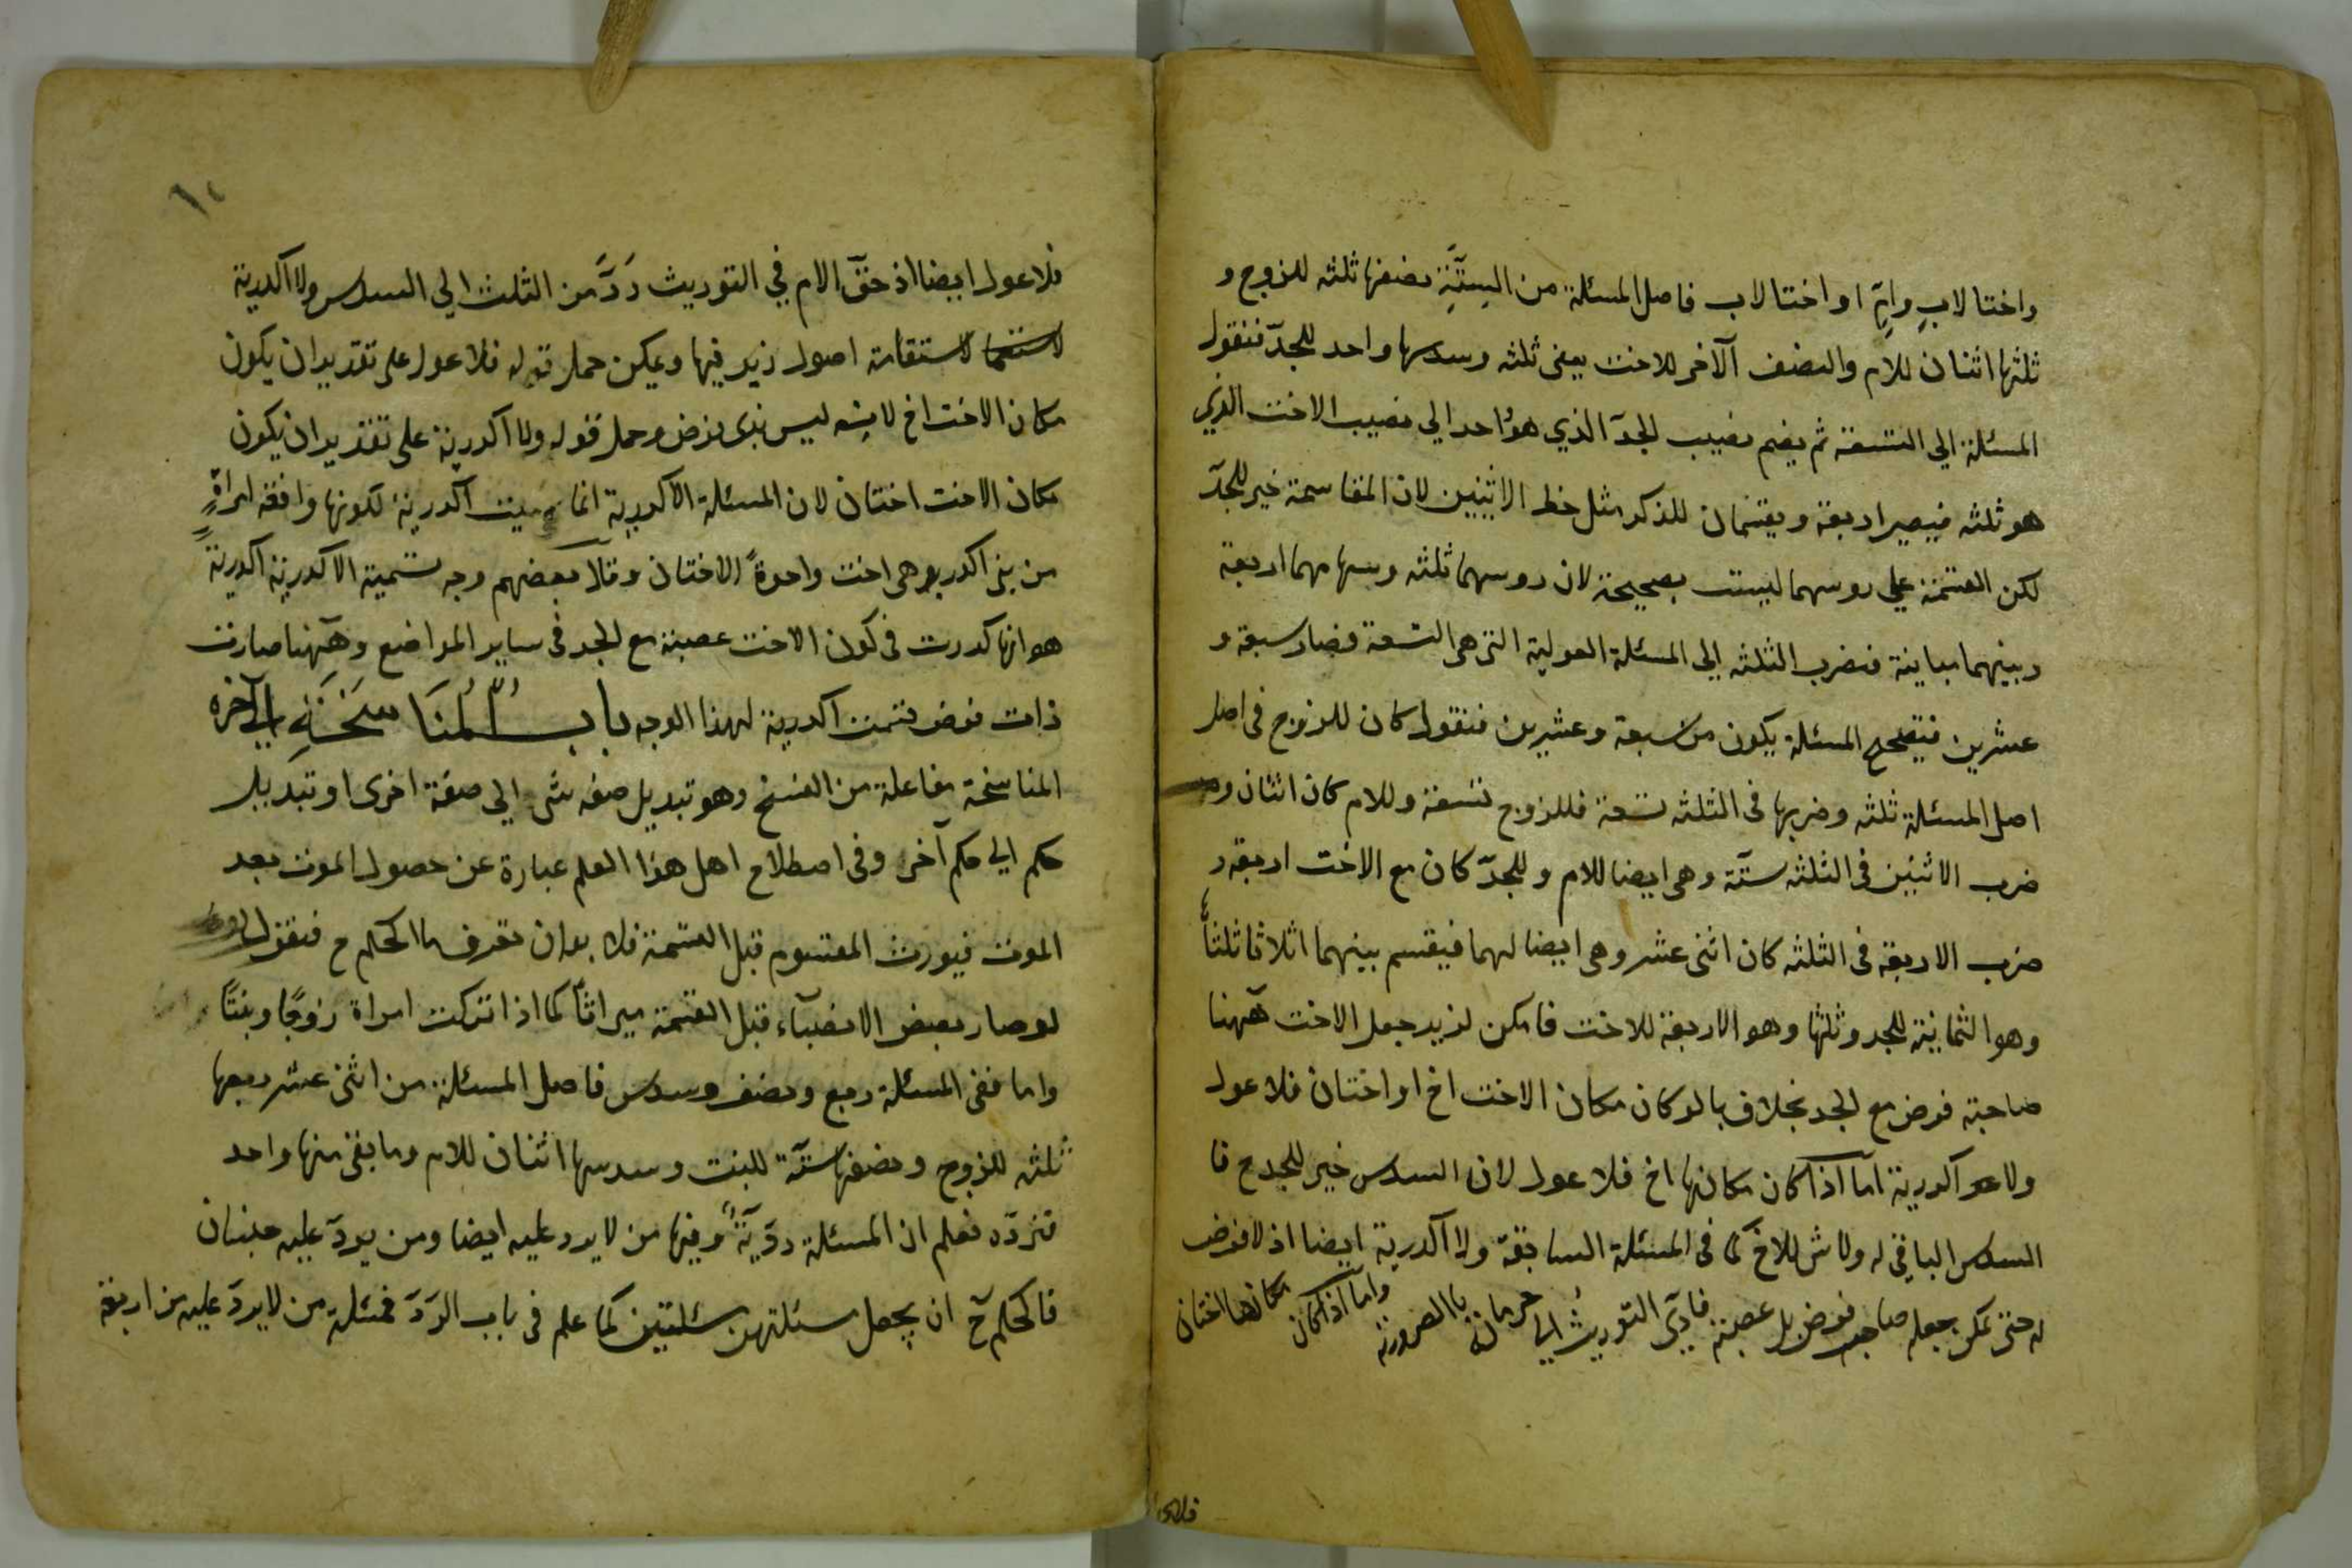 واختا لابٍ وامٍّ او اختا لاب فاصل المسئلة من السِتَّةِ نصفها ثلثه للزوج و
ثلثها اثنان للام والنصف الآخر للاخت يعنى ثلثه وسدسها واحد للجدّ فنقول
المسئلة الي التسعة ثم يضم نصيب الجدّ الذي هو واحد الي نصيب الاخت الذي
هو ثلثه فيصير اربعة ويقتسمان للذكر مثل حظ الانثيين لان المقاسمة خير للجدّ
لكن القسمة علي روسهما ليست بصحيحة لان روسهما ثلثه وسهامهما اربعة
وبينهما مباينة فنضرب الثلثه الي المسئلة العولية التي هي التسعة فصار سبعة و
عشرين فتصحيح المسئلة يكون من سبعة وعشرين فنقول كان للزوج فى اصل
اصل المسئلة ثلثه وضربها فى الثلثه تسعة فللزوج تسعة وللام كان اثنان و
ضرب الاثنين فى الثلثه ستّة وهى ايضا للام وللجدّ كان مع الاخت اربعة و
ضرب الاربعة فى الثلثه كان اثنى عشر وهى ايضا لهما فيقسم بينهما اثلاثا ثلثاً
وهو الثمانية للجد وثلثها وهو الاربعة للاخت فامكن لزيد جعل الاخت ههنا
صاحبة فرض مع الجد بخلاف ما لو كان مكان الاخت اخ او اختان فلا عول
ولا اكدرية امّا اذا كان مكانها اخ فلا عول لان السدس خير للجد ح فا
السدس الباقي له ولا شى للاخ كما فى المسئلة السابقة ولا اكدرية ايضا اذ لا فرض
له حتى يمكن جعله صاحب فرض بل عصبة فادّى التوريث الي حرمانه بالضرورة واما اذا كان مكانها اختان
فلا عول ايضا اذ حقّ الام في التوريث رَدَّ من الثلث الي السدس ولا اكدرية
لاستقامة اصول زيد فيها ويمكن حمل قوله فلا عول على تقدير ان يكون
مكان الاخت اخ لانه ليس بذى فرض وحمل قوله ولا اكدرية على تقدير ان يكون
مكان الاخت اختان لان المسئلة الاكدرية انما سميت اكدرية لكونها واقعة امراةٍ
من بنى اكدر وهى اخت واحدةً لا اختان وقال بعضهم وجه تسمية الاكدرية اكدريةً
هو انها كدرت فى كون الاخت عصبة مع الجد فى ساير المواضع وههنا صارت
ذات فرض فسمت اكدرية لهذا الوجه باب المناسخة الي آخره
المناسخة مفاعلة من النسخ وهو تبديل صفه شى الي صفة اخرى او تبديل
حكم الي حكم آخر وفى اصطلاح اهل هذا العلم عبارة عن حصول الموت بعد
الموت فيورث المقسوم قبل القسمة فلا بد ان تعرف ما الحكم ح فنقول
لو صار بعض الانصباء قبل القسمة ميراثاً كما اذا تركت امراة زوجًا وبنتًا
واما ففى المسئلة ربع ونصف وسدس فاصل المسئلة من اثنى عشر ربعها
ثلثه للزوج ونصفها ستّة للبنت وسدسها اثنان للام وما بقى منها واحد
نردّه فعلم ان المسئلة ردّيّة وفيها من لا يرد عليه ايضا ومن يردّ عليه جنسان
فالحكم ح ان يجعل مسئلتهن مسئلتين كما علم فى باب الردّ فمسئلة من لا يردّ عليه من اربعة